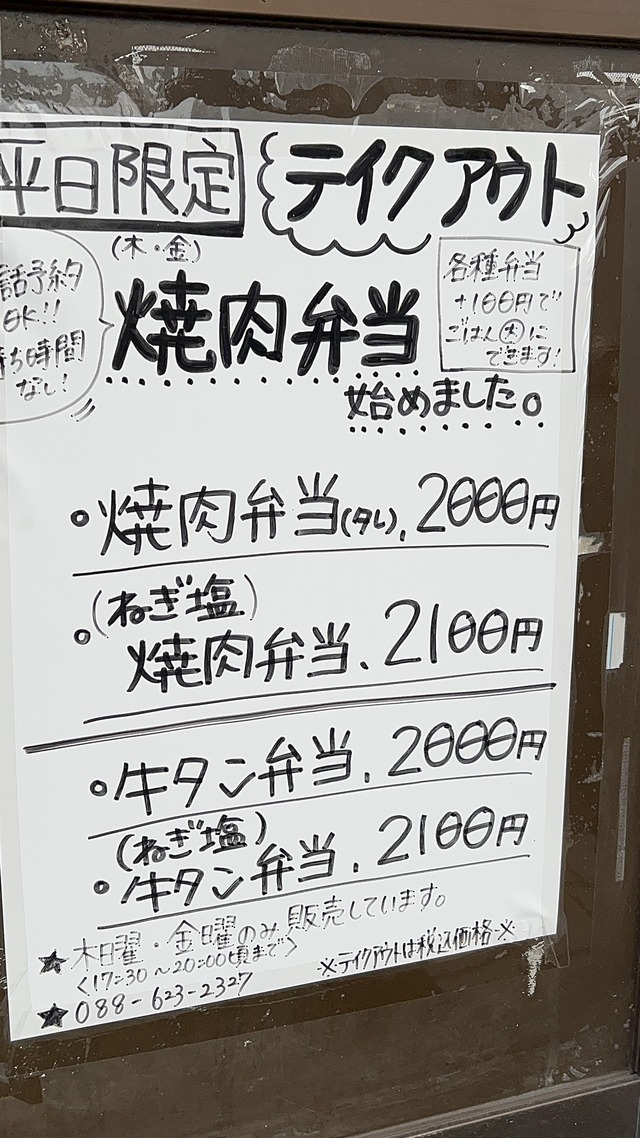 平日限定
テイクアウト
(木・金)
話予約
OK!!
待ち時間
なし!
焼肉弁当
始めました。
各種弁当
+100円で
ごはん大に
できます!
焼肉弁当(タレ)、2000円
(ねぎ塩)
焼肉弁当、2100円
牛タン弁当、2000円
(ねぎ塩)
牛タン弁当、2100円
★木曜日・金曜のみ販売しています。
<17:30~20:00頃まで>
※テイクアウトは税込価格※
★088-623-2327